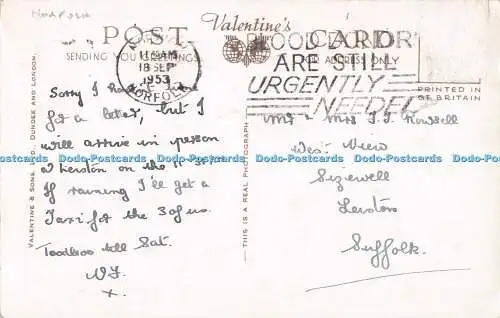 Norfolk
POST CARD
Valentine's
SENDING YOU GREETINGS
FOR ADDRESS ONLY
11 45 AM
18 SEP
1953
NORFOLK
BLOOD DONORS
ARE STILL
URGENTLY
NEEDED
PRINTED IN
GT BRITAIN
VALENTINE & SONS, LTD., DUNDEE AND LONDON.
THIS IS A REAL PHOTOGRAPH
Sorry I have
for a letter, but I
will arrive in person
at Leiston on the
If raining I'll get a
Taxi for the 3 of us.
Toodleoo till Sat.
x.
Mr & Mrs J.J. Rowsell
West View
Sizewell
Leiston
Suffolk.
Dodo-Postcards Dodo-Postcards Dodo-Postcards Dodo-Postcards Dodo-Postcards Dodo-Postcards